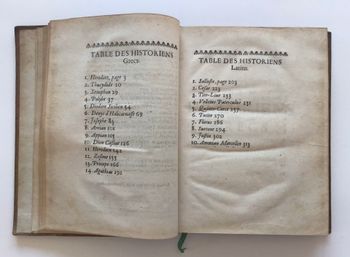 TABLE DES HISTORIENS
Grecs.
1. Herodote, page 3
2. Thucydide 10
3. Xenophon 19
4. Polybe 37
5. Diodore Sicilien 54
6. Denys d'Halicarnasse 69
7. Josephe 83
8. Arrian 101
9. Appian 103
10. Dion Cassius 126
11. Herodian 142
12. Zosime 153
13. Procope 166
14. Agathias 191
TABLE DES HISTORIENS
Latins.
1. Salluste, page 203
2. Cesar 223
3. Tite-Live 233
4. Velleius Paterculus 251
5. Quinte-Curce 257
6. Tacite 270
7. Florus 286
8. Suetone 294
9. Justin 302
10. Ammian Marcellin 313